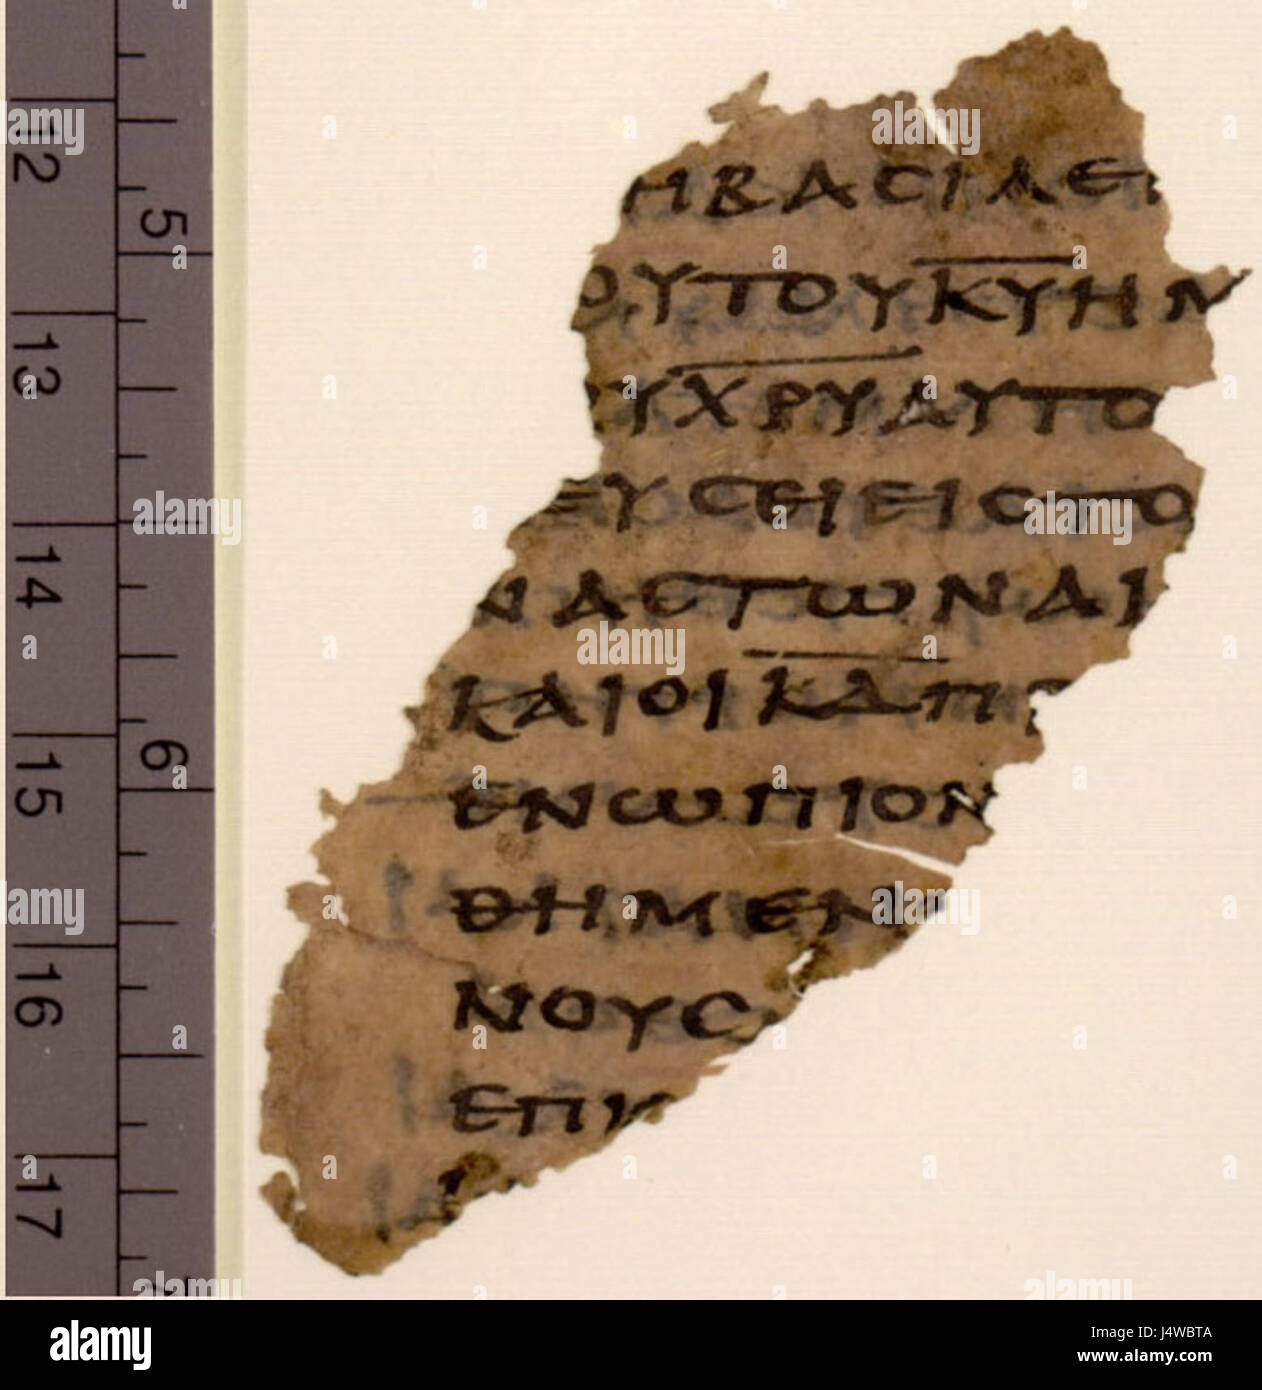 12
13
14
15
16
17
5
6
7
Η ΒΑΣΙΛΕΙ
ΟΥ ΤΟΥ ΚΥ ΗΜ
ΟΥ ΧΡΥ ΑΥΤΟ
ΕΥΣΕΙ ΕΙΣ ΤΟ
ΝΑΣ ΤΩΝ ΑΙ
ΚΑΙ ΟΙ ΚΔ ΠΡ
ΕΝΩΠΙΟΝ
ΘΗΜΕΝ
ΝΟΥΣ
ΕΠΙ
alamy stock photo
J4WBTA
www.alamy.com